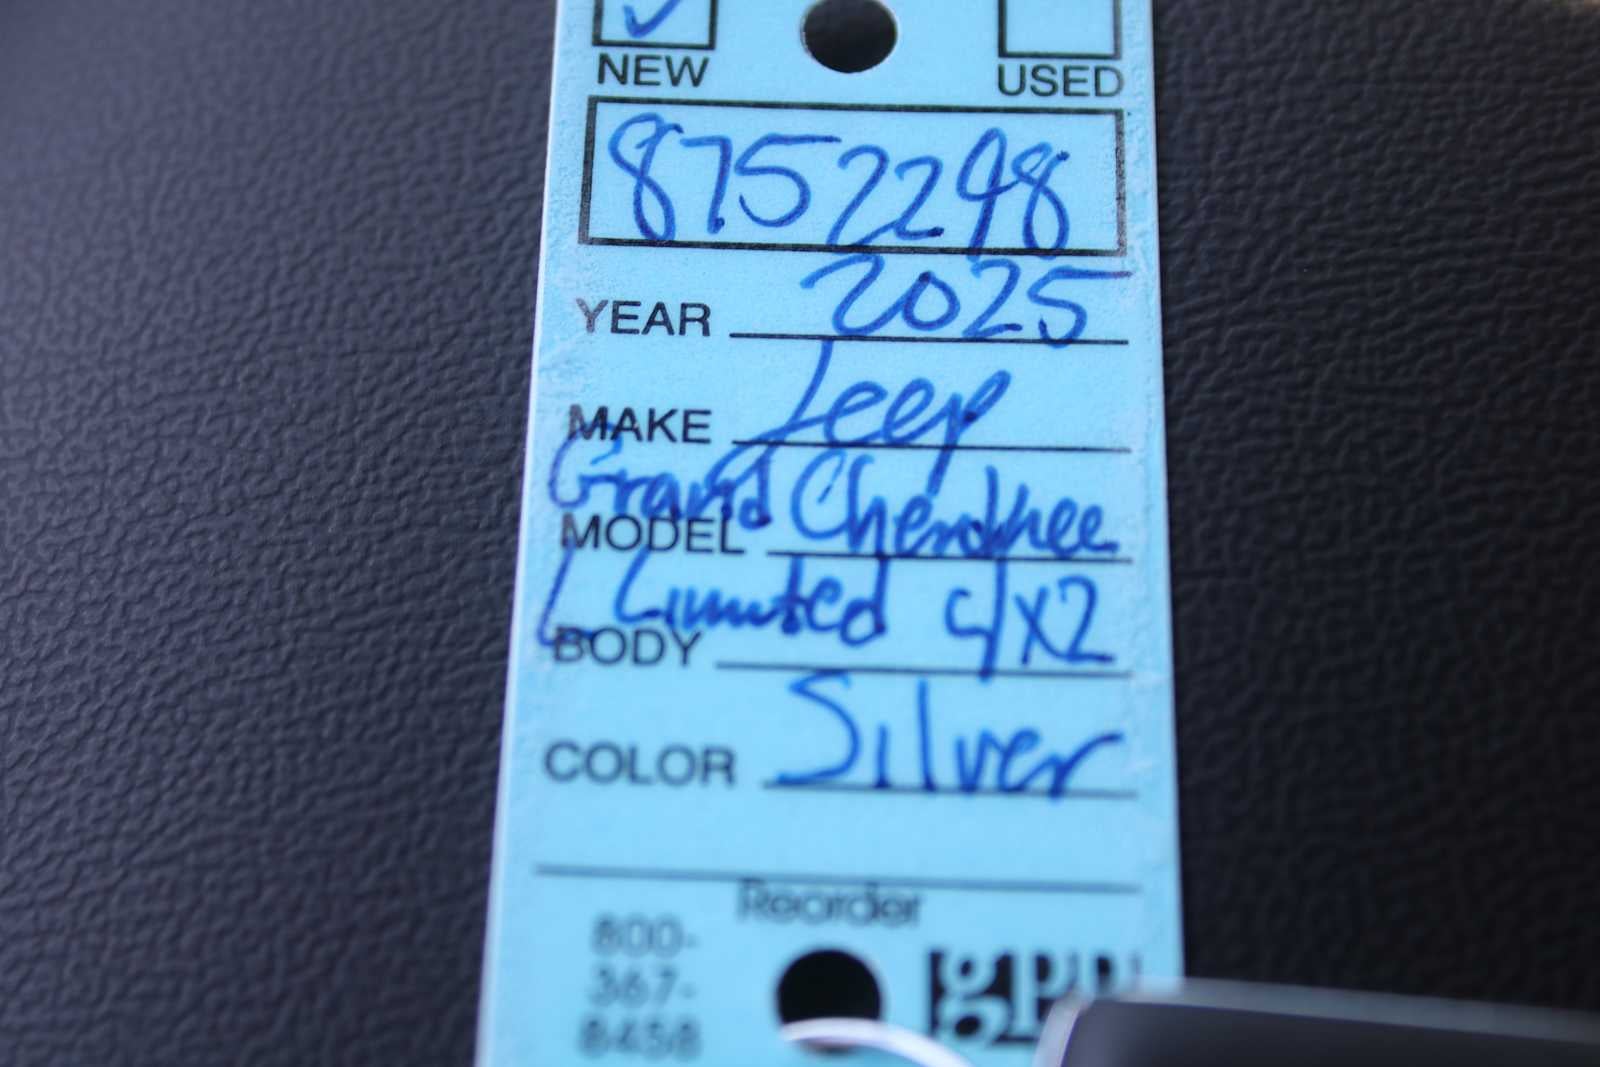 NEW USED
8752298
YEAR 2025
MAKE Jeep
MODEL Grand Cherokee
L Limited 4x2
BODY
COLOR Silver
Reorder
800-
367-
8458